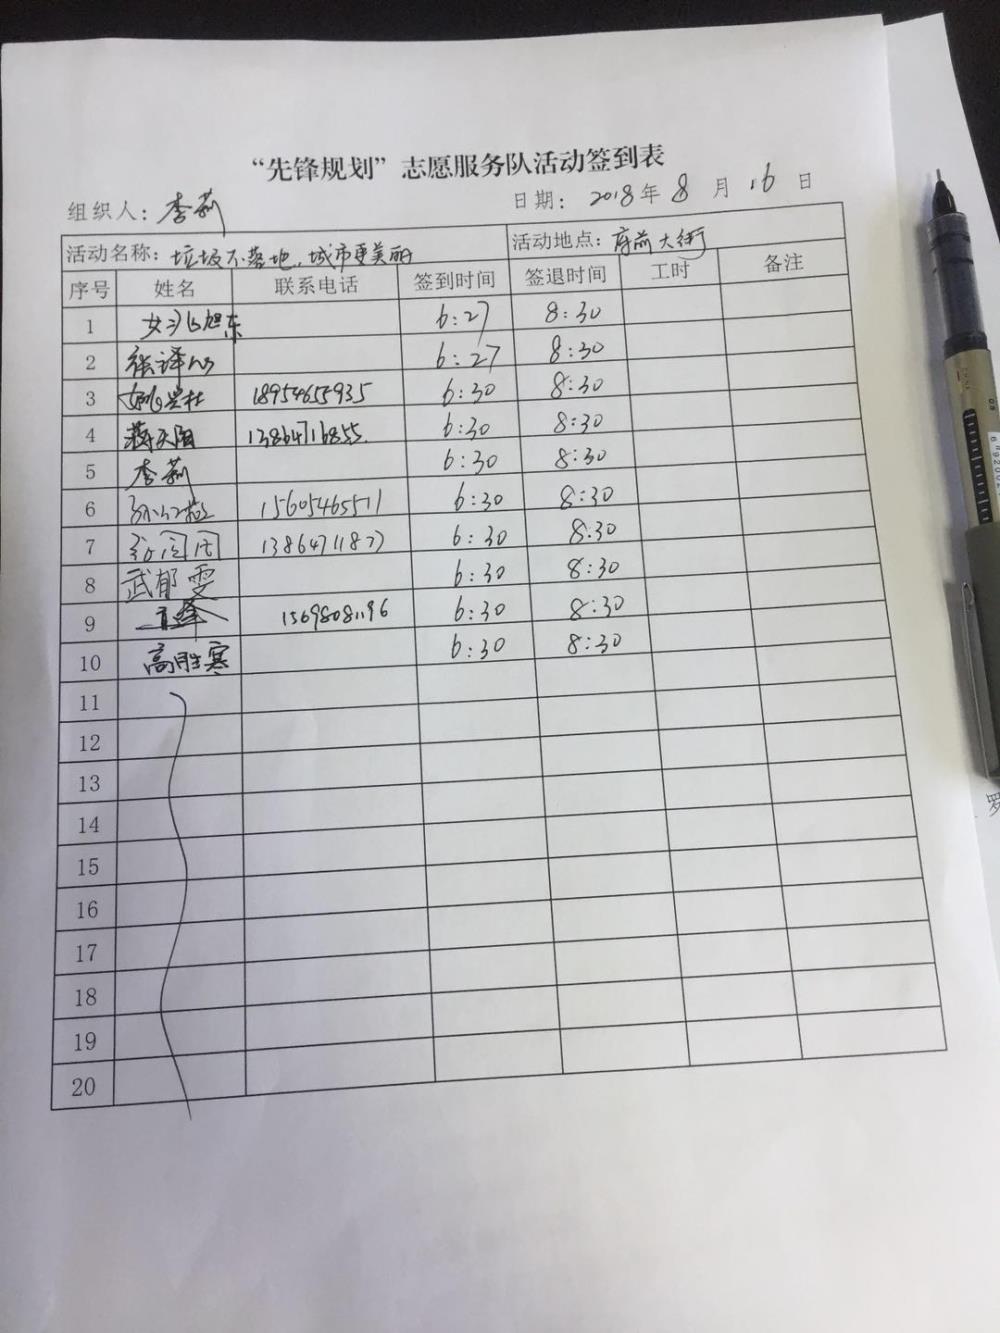 “先锋规划”志愿服务队活动签到表
组织人：李莉 日期：2018年8月16日
活动名称：垃圾不落地，城市更美丽 活动地点：府前大街
序号 姓名 联系电话 签到时间 签退时间 工时 备注
1 姚旭东 6:27 8:30
2 张译心 6:27 8:30
3 18954655935 6:30 8:30
4 蒋天阳 13864716855 6:30 8:30
5 李莉 6:30 8:30
6 15605465511 6:30 8:30
7 13864711877 6:30 8:30
8 武郁雯 6:30 8:30
9 15698081196 6:30 8:30
10 高胜寒 6:30 8:30
11
12
13
14
15
16
17
18
19
20